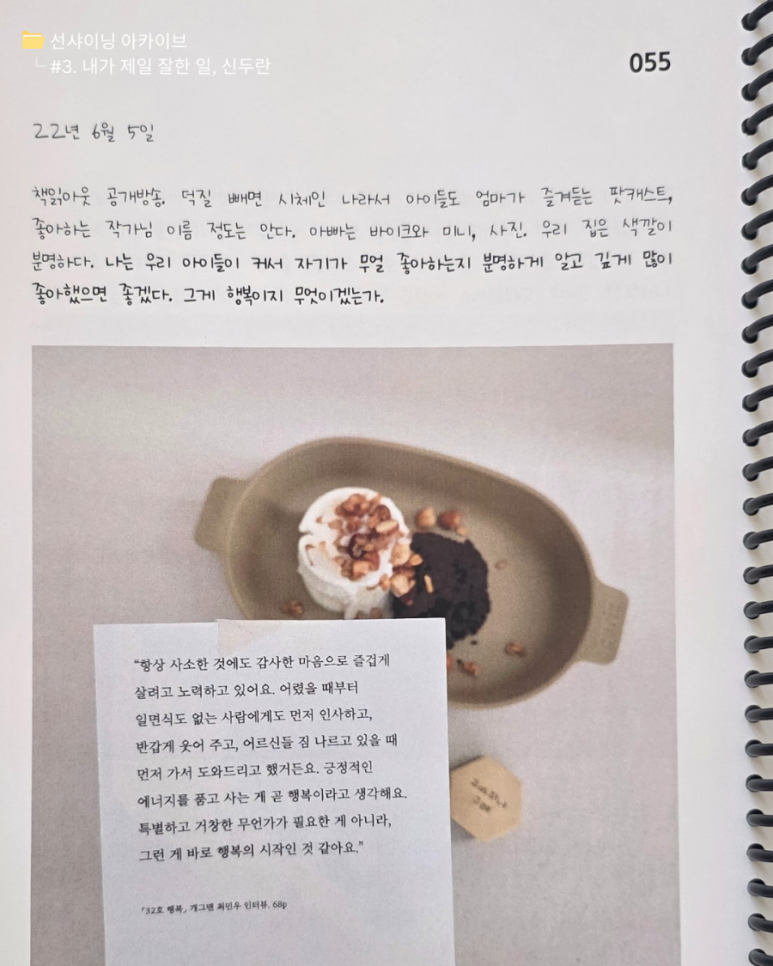 선샤이닝 아카이브
└ #3. 내가 제일 잘한 일, 신두란
055
22년 6월 5일
책읽아웃 공개방송. 덕질 빼면 시체인 나라서 아이들도 엄마가 즐겨듣는 팟캐스트,
좋아하는 작가님 이름 정도는 안다. 아빠는 바이크와 미니, 사진. 우리 집은 색깔이
분명하다. 나는 우리 아이들이 커서 자기가 무얼 좋아하는지 분명하게 알고 깊게 많이
좋아했으면 좋겠다. 그게 행복이지 무엇이겠는가.
“항상 사소한 것에도 감사한 마음으로 즐겁게
살려고 노력하고 있어요. 어렸을 때부터
일면식도 없는 사람에게도 먼저 인사하고,
반갑게 웃어 주고, 어르신들 짐 나르고 있을 때
먼저 가서 도와드리고 했거든요. 긍정적인
에너지를 품고 사는 게 곧 행복이라고 생각해요.
특별하고 거창한 무언가가 필요한 게 아니라,
그런 게 바로 행복의 시작인 것 같아요.”
「32호 행복」 개그맨 최민우 인터뷰, 68p